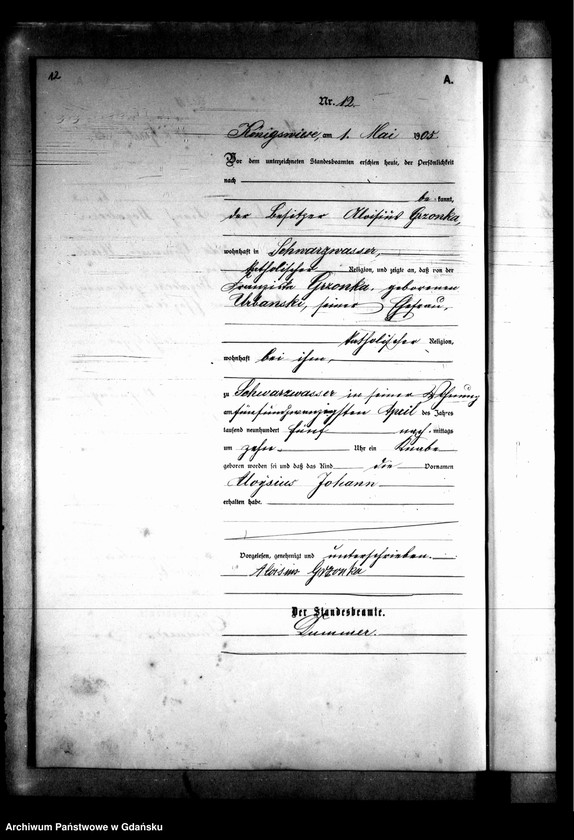 12
A.
Nr. 12.
Königswiese, am 1. Mai 1905.
Vor dem unterzeichneten Standesbeamten erschien heute, der Persönlichkeit
nach
be kannt,
der Besitzer Aloisius Grzonka,
wohnhaft in Schwarzwasser,
katholischer Religion, und zeigte an, daß von der
Franziska Grzonka, geborenen
Urbanski, seiner Ehefrau,
katholischer Religion,
wohnhaft bei ihm,
zu Schwarzwasser in seiner Wohnung
am fünfundzwanzigsten April des Jahres
tausend neunhundert fünf nach mittags
um zehn Uhr ein Knabe
geboren worden sei und daß das Kind die Vornamen
Aloysius Johann
erhalten habe.
Vorgelesen, genehmigt und unterschrieben.
Aloisius Grzonka
Der Standesbeamte.
Dummer.
Archiwum Państwowe w Gdańsku